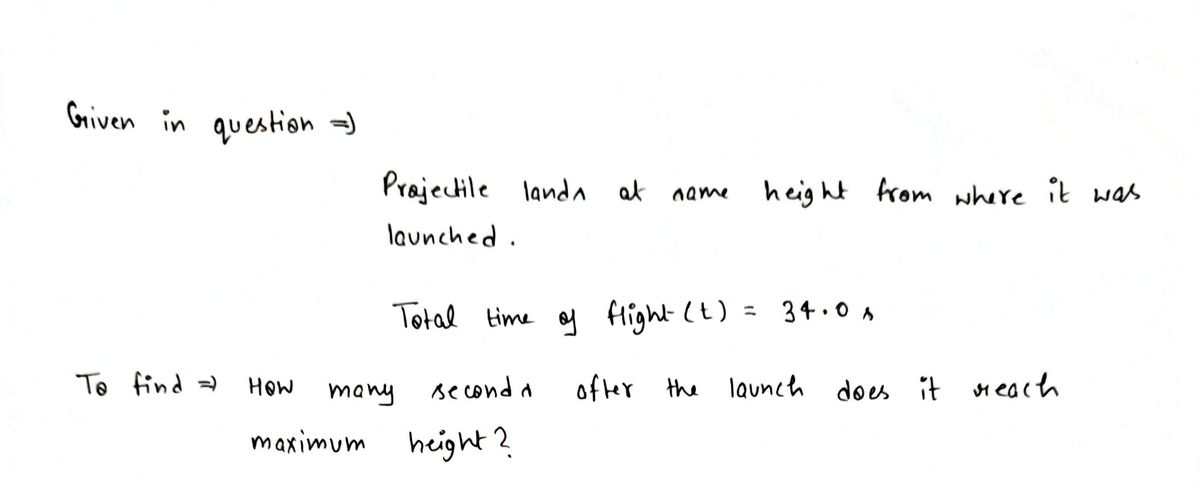 Given in question ⇒
Projectile lands at same height from where it was
launched.
Total time of flight (t) = 34.0 s
To find ⇒ How many seconds after the launch does it reach
maximum height?